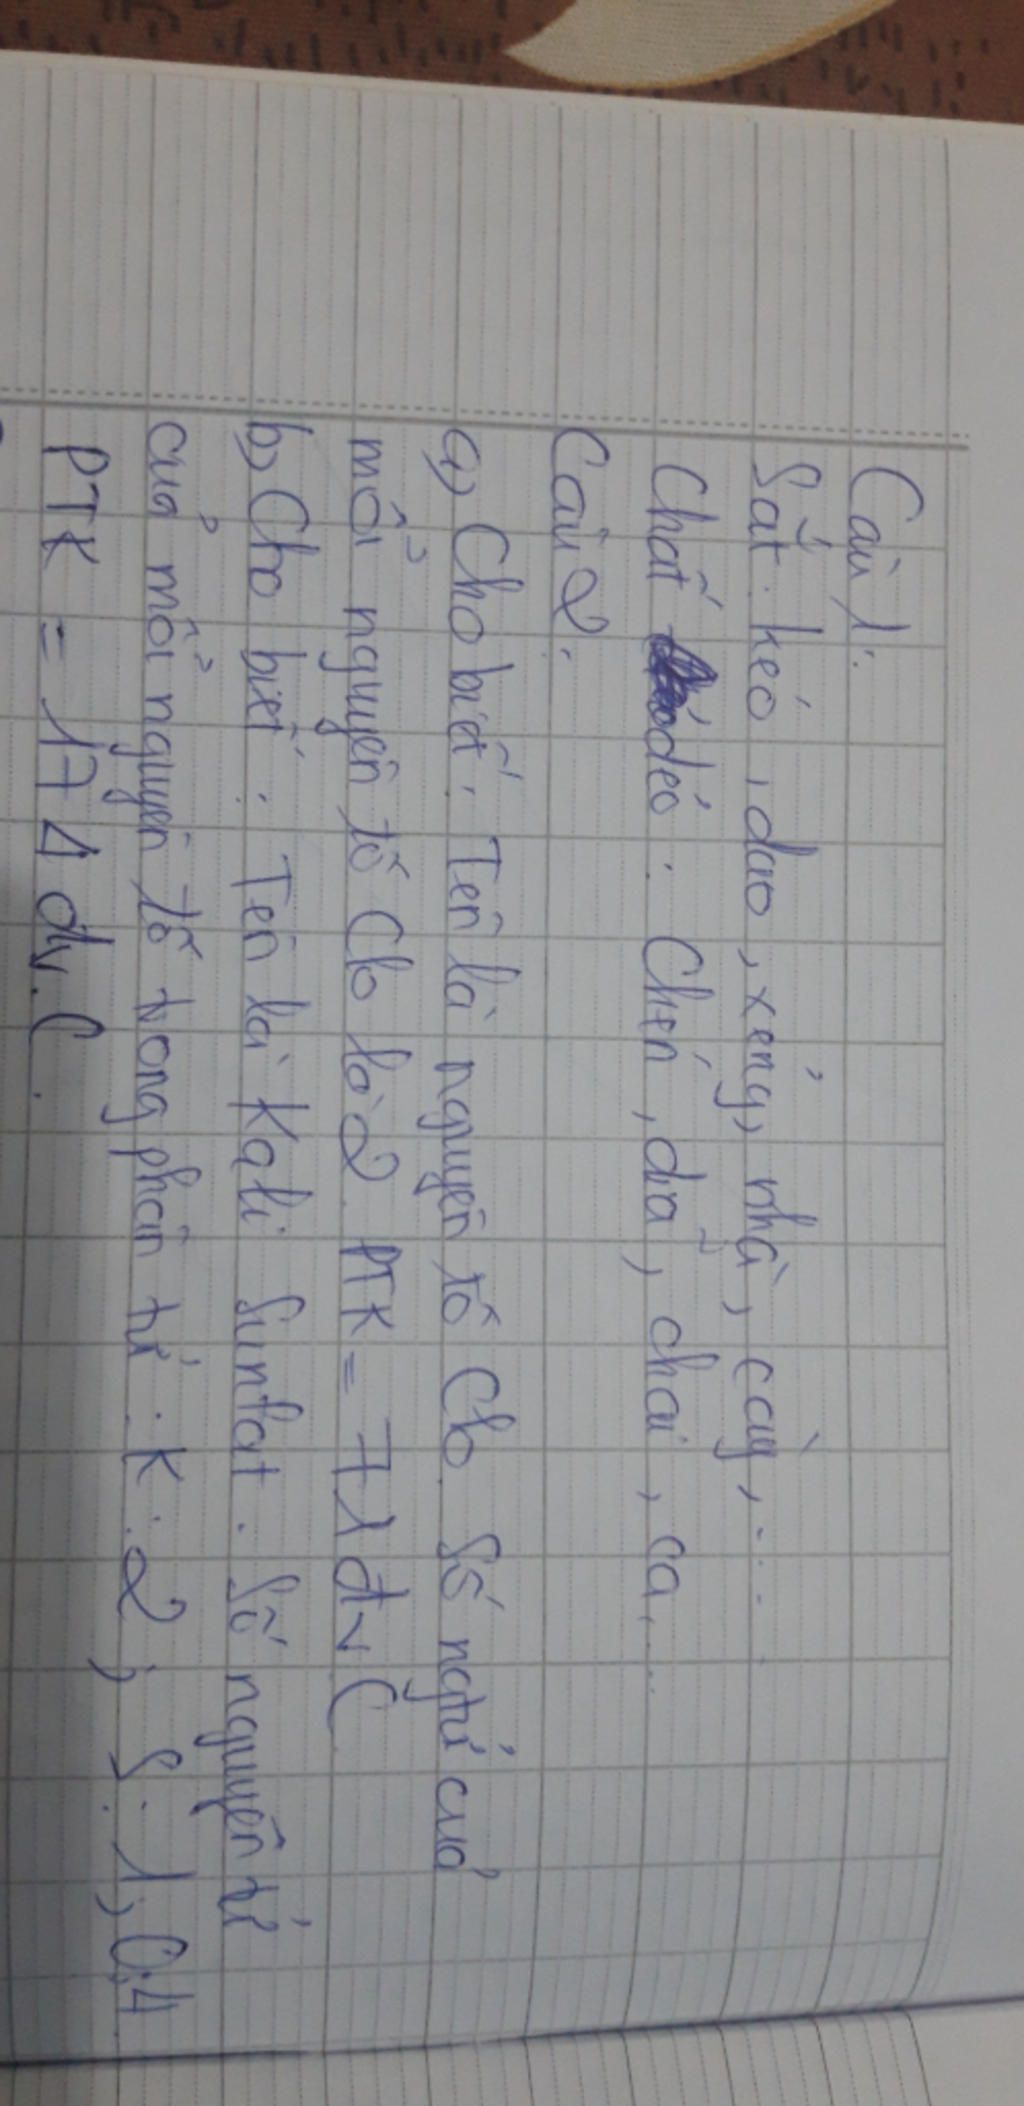 Câu 1:
Sắt: kéo, dao, xẻng, nhà, cày,...
Chất dẻo: Chén, dĩa, chai, ca,...
Câu 2:
a) Cho biết: Tên là nguyên tố Clo. Số ngtử của
mỗi nguyên tố Clo là 2. PTK = 71 đvC
b) Cho biết: Tên là Kali Sunfat. Số nguyên tử
của mỗi nguyên tố trong phân tử: K: 2; S: 1; O: 4
PTK = 174 đv.C.